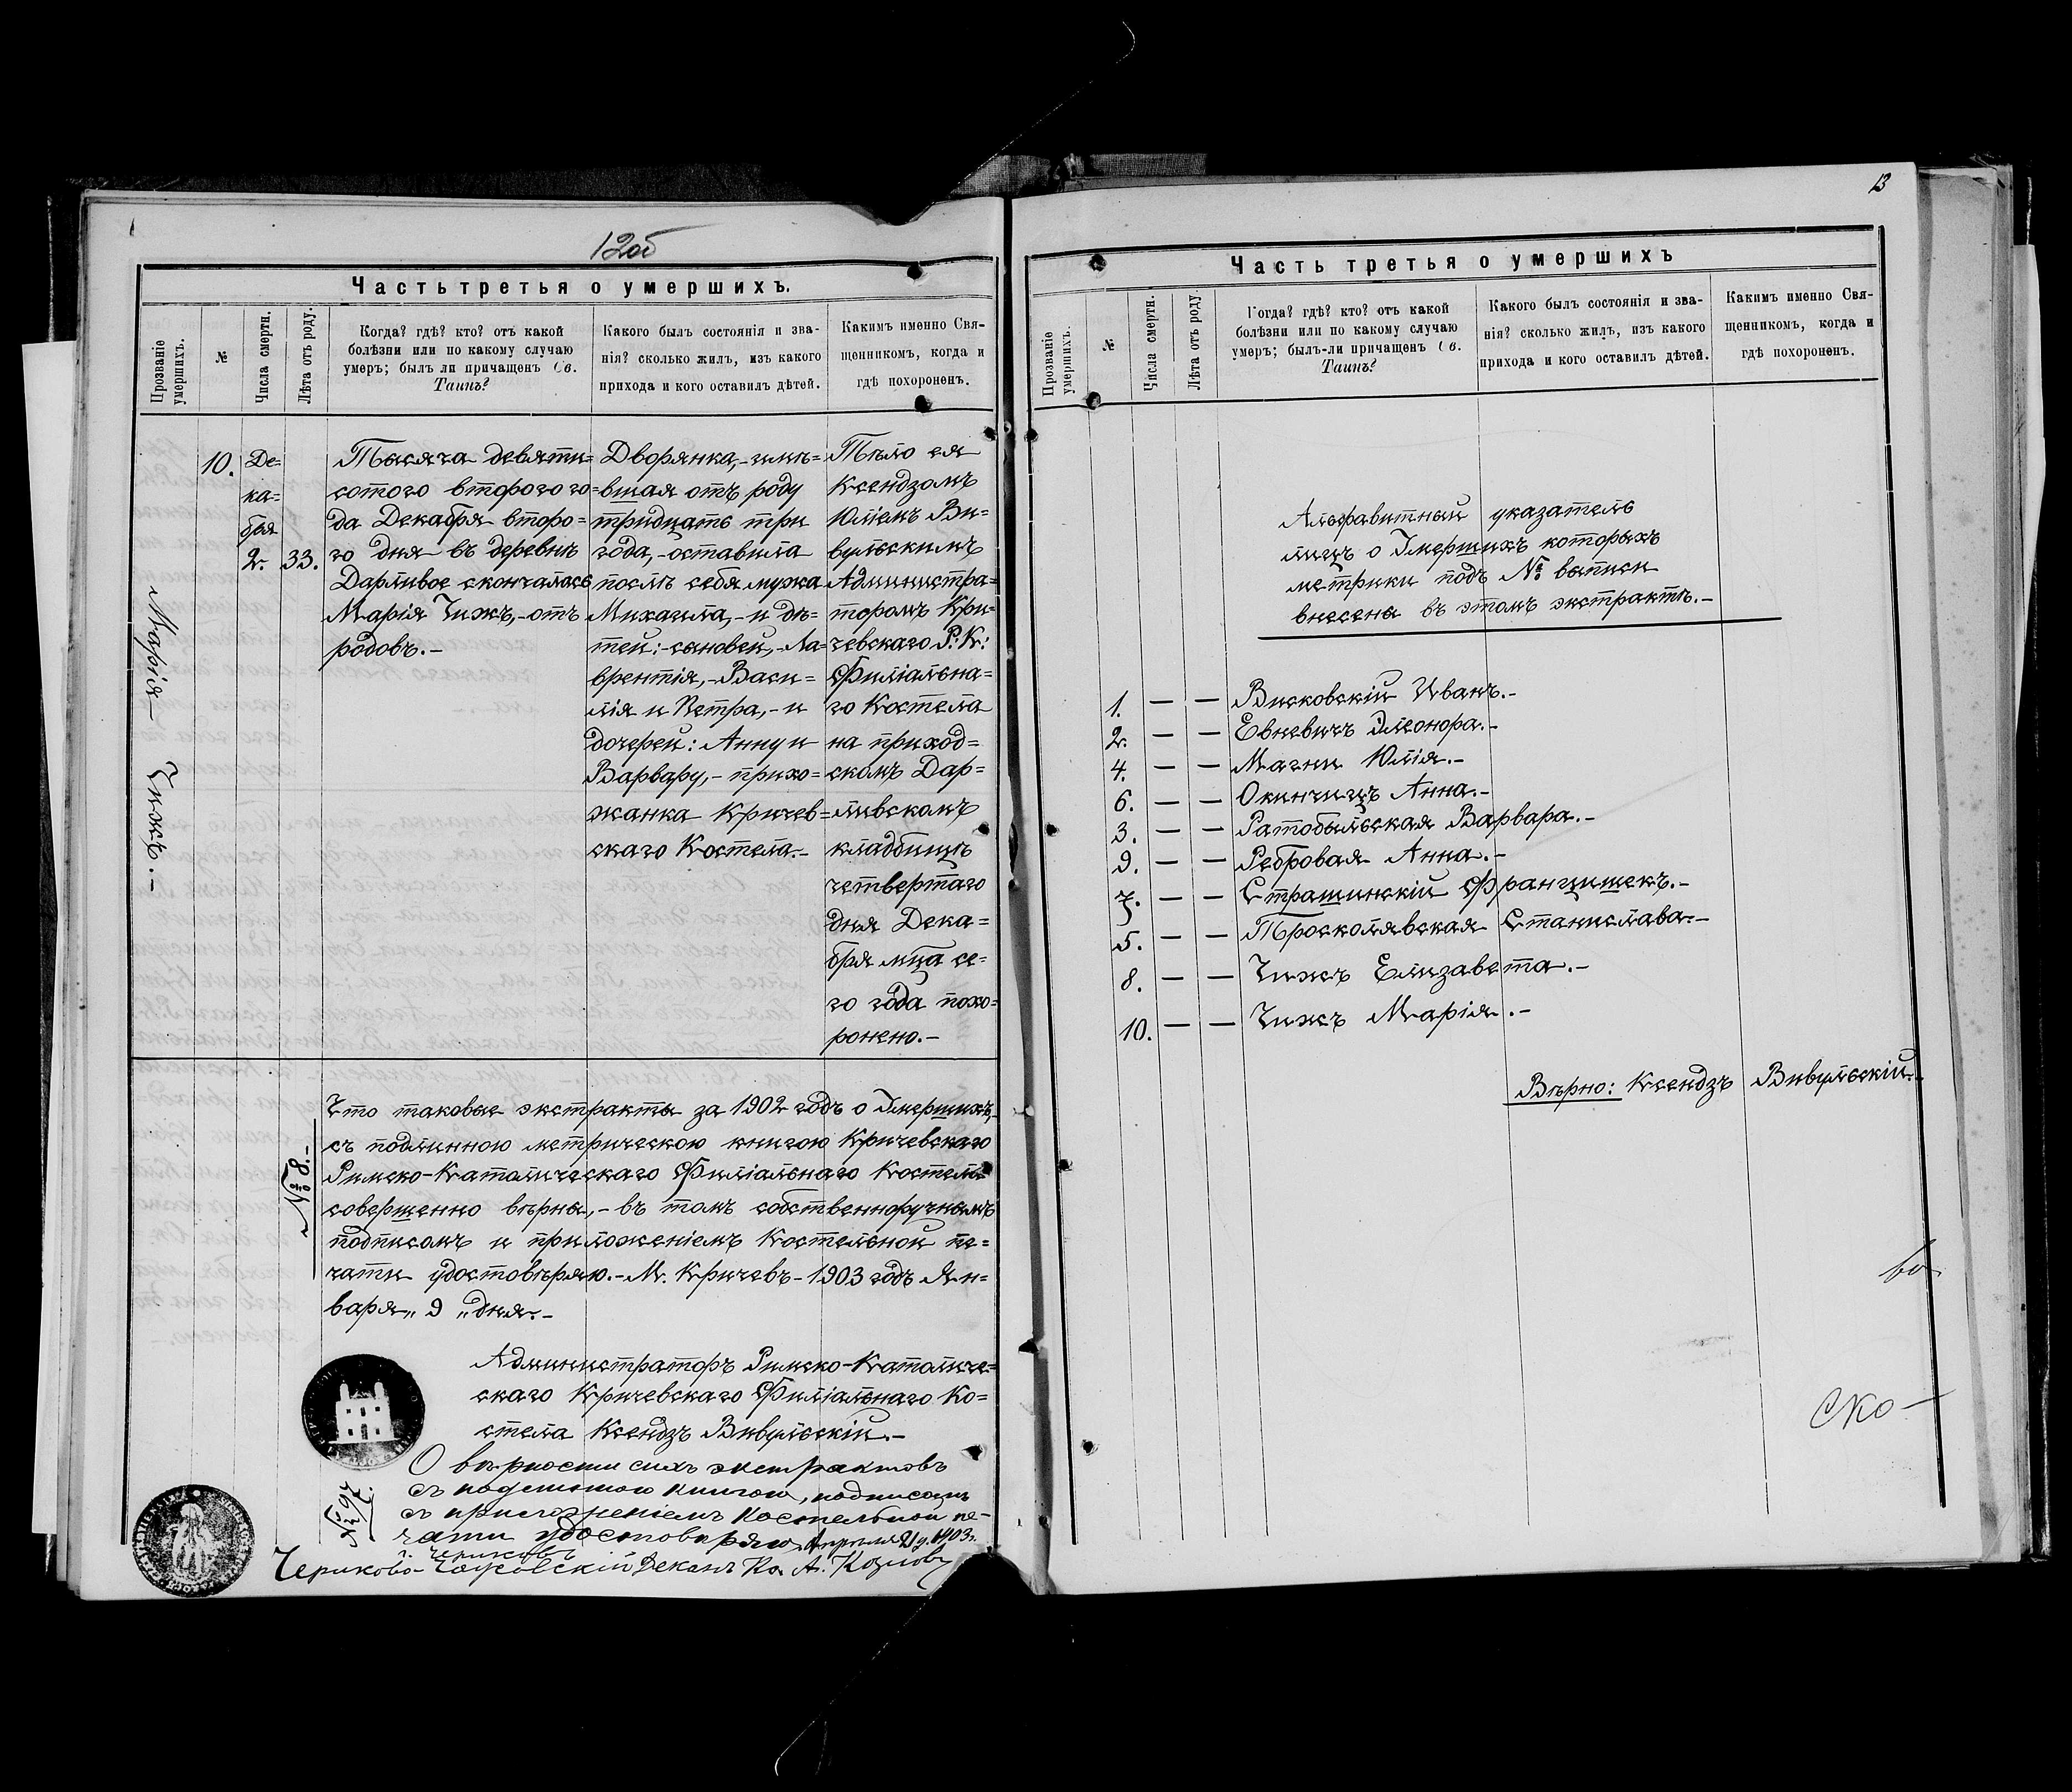 12об
Часть третья о умершихъ.
Прозваніе умершихъ.
№
Числа смертн.
Лѣта отъ роду.
Когда? гдѣ? кто? отъ какой
болѣзни или по какому случаю
умеръ; былъ ли причащенъ Св.
Таинъ?
Какого былъ состоянія и зва-
нія? сколько жилъ, изъ какого
прихода и кого оставилъ дѣтей.
Какимъ именно Свя-
щенникомъ, когда и
гдѣ похороненъ.
Марія Чижъ.-
10.
Де=
ка=
бря
2.
33.
Тысяча девяти=
сотого второго го=
да Декабря второ=
го дня въ деревнѣ
Дарливое скончалась
Марія Чижъ,- отъ
родовъ.-
Дворянка,- имѣ=
вшая отъ роду
тридцать три
года,- оставила
послѣ себя мужа
Михаила,- и дѣ=
тей:- сыновей,- Ла=
врентія,- Васи=
лія и Петра,- и
дочерей: Анну и
Варвару,- прихо=
жанка Кричев=
скаго Костела.-
Тѣло ея
Ксендзомъ
Юліемъ Ви=
вульскимъ
Администра=
торомъ Кри=
чевскаго Р: К:
Филіальна=
го Костела
на приход=
скомъ Дар=
ливскомъ
кладбищѣ
четвертаго
дня Дека=
бря мца се=
го года похо=
ронено.-
№ 8.-
Что таковые экстракты за 1902 годъ о Умершихъ,
съ подлинною метрическою книгою Кричевскаго
Римско-Католическаго Филіальнаго Костела
совершенно вѣрны,- въ томъ собственноручнымъ
подписомъ и приложеніемъ Костельной пе=
чати удостовѣряю.- М. Кричевъ- 1903 годъ Ян=
варя „ 9 „ дня.-
Администраторъ Римско-Католиче=
скаго Кричевскаго Филіальнаго Ко=
стела Ксендзъ Вивульскій.-
№ 97.
О вѣрности сихъ экстрактовъ
съ подлинною книгою, подписомъ
съ приложеніемъ Костельной пе-
чати удостовѣряю Апрѣля 21 д. 1903 г.
г. Чериковъ
Чериково- Деканъ Кс. А. Козлов
13
Часть третья о умершихъ
Прозваніе умершихъ.
№
Числа смертн.
Лѣта отъ роду.
Когда? гдѣ? кто? отъ какой
болѣзни или по какому случаю
умеръ; былъ-ли причащенъ Св.
Таинъ?
Какого былъ состоянія и зва-
нія? сколько жилъ, изъ какого
прихода и кого оставилъ дѣтей.
Какимъ именно Свя-
щенникомъ, когда и
гдѣ похороненъ.
Алфавитный указатель
лицъ о Умершихъ которыхъ
метрики подъ № выписи
внесены въ этомъ экстрактѣ.-
1. — — Висковскій Иванъ.-
2. — — Евневичъ Элеонора.-
4. — — Магни Юлія.-
6. — — Окинчицъ Анна.-
3. — — Ратобыльская Варвара.-
9. — — Ребровая Анна.-
7. — — Страшинскій Францишекъ.-
5. — — Просколявская Станислава.-
8. — — Чижъ Елизавета.-
10. — — Чижъ Марія.-
Вѣрно: Ксендзъ Вивульскій.-
во
ско-